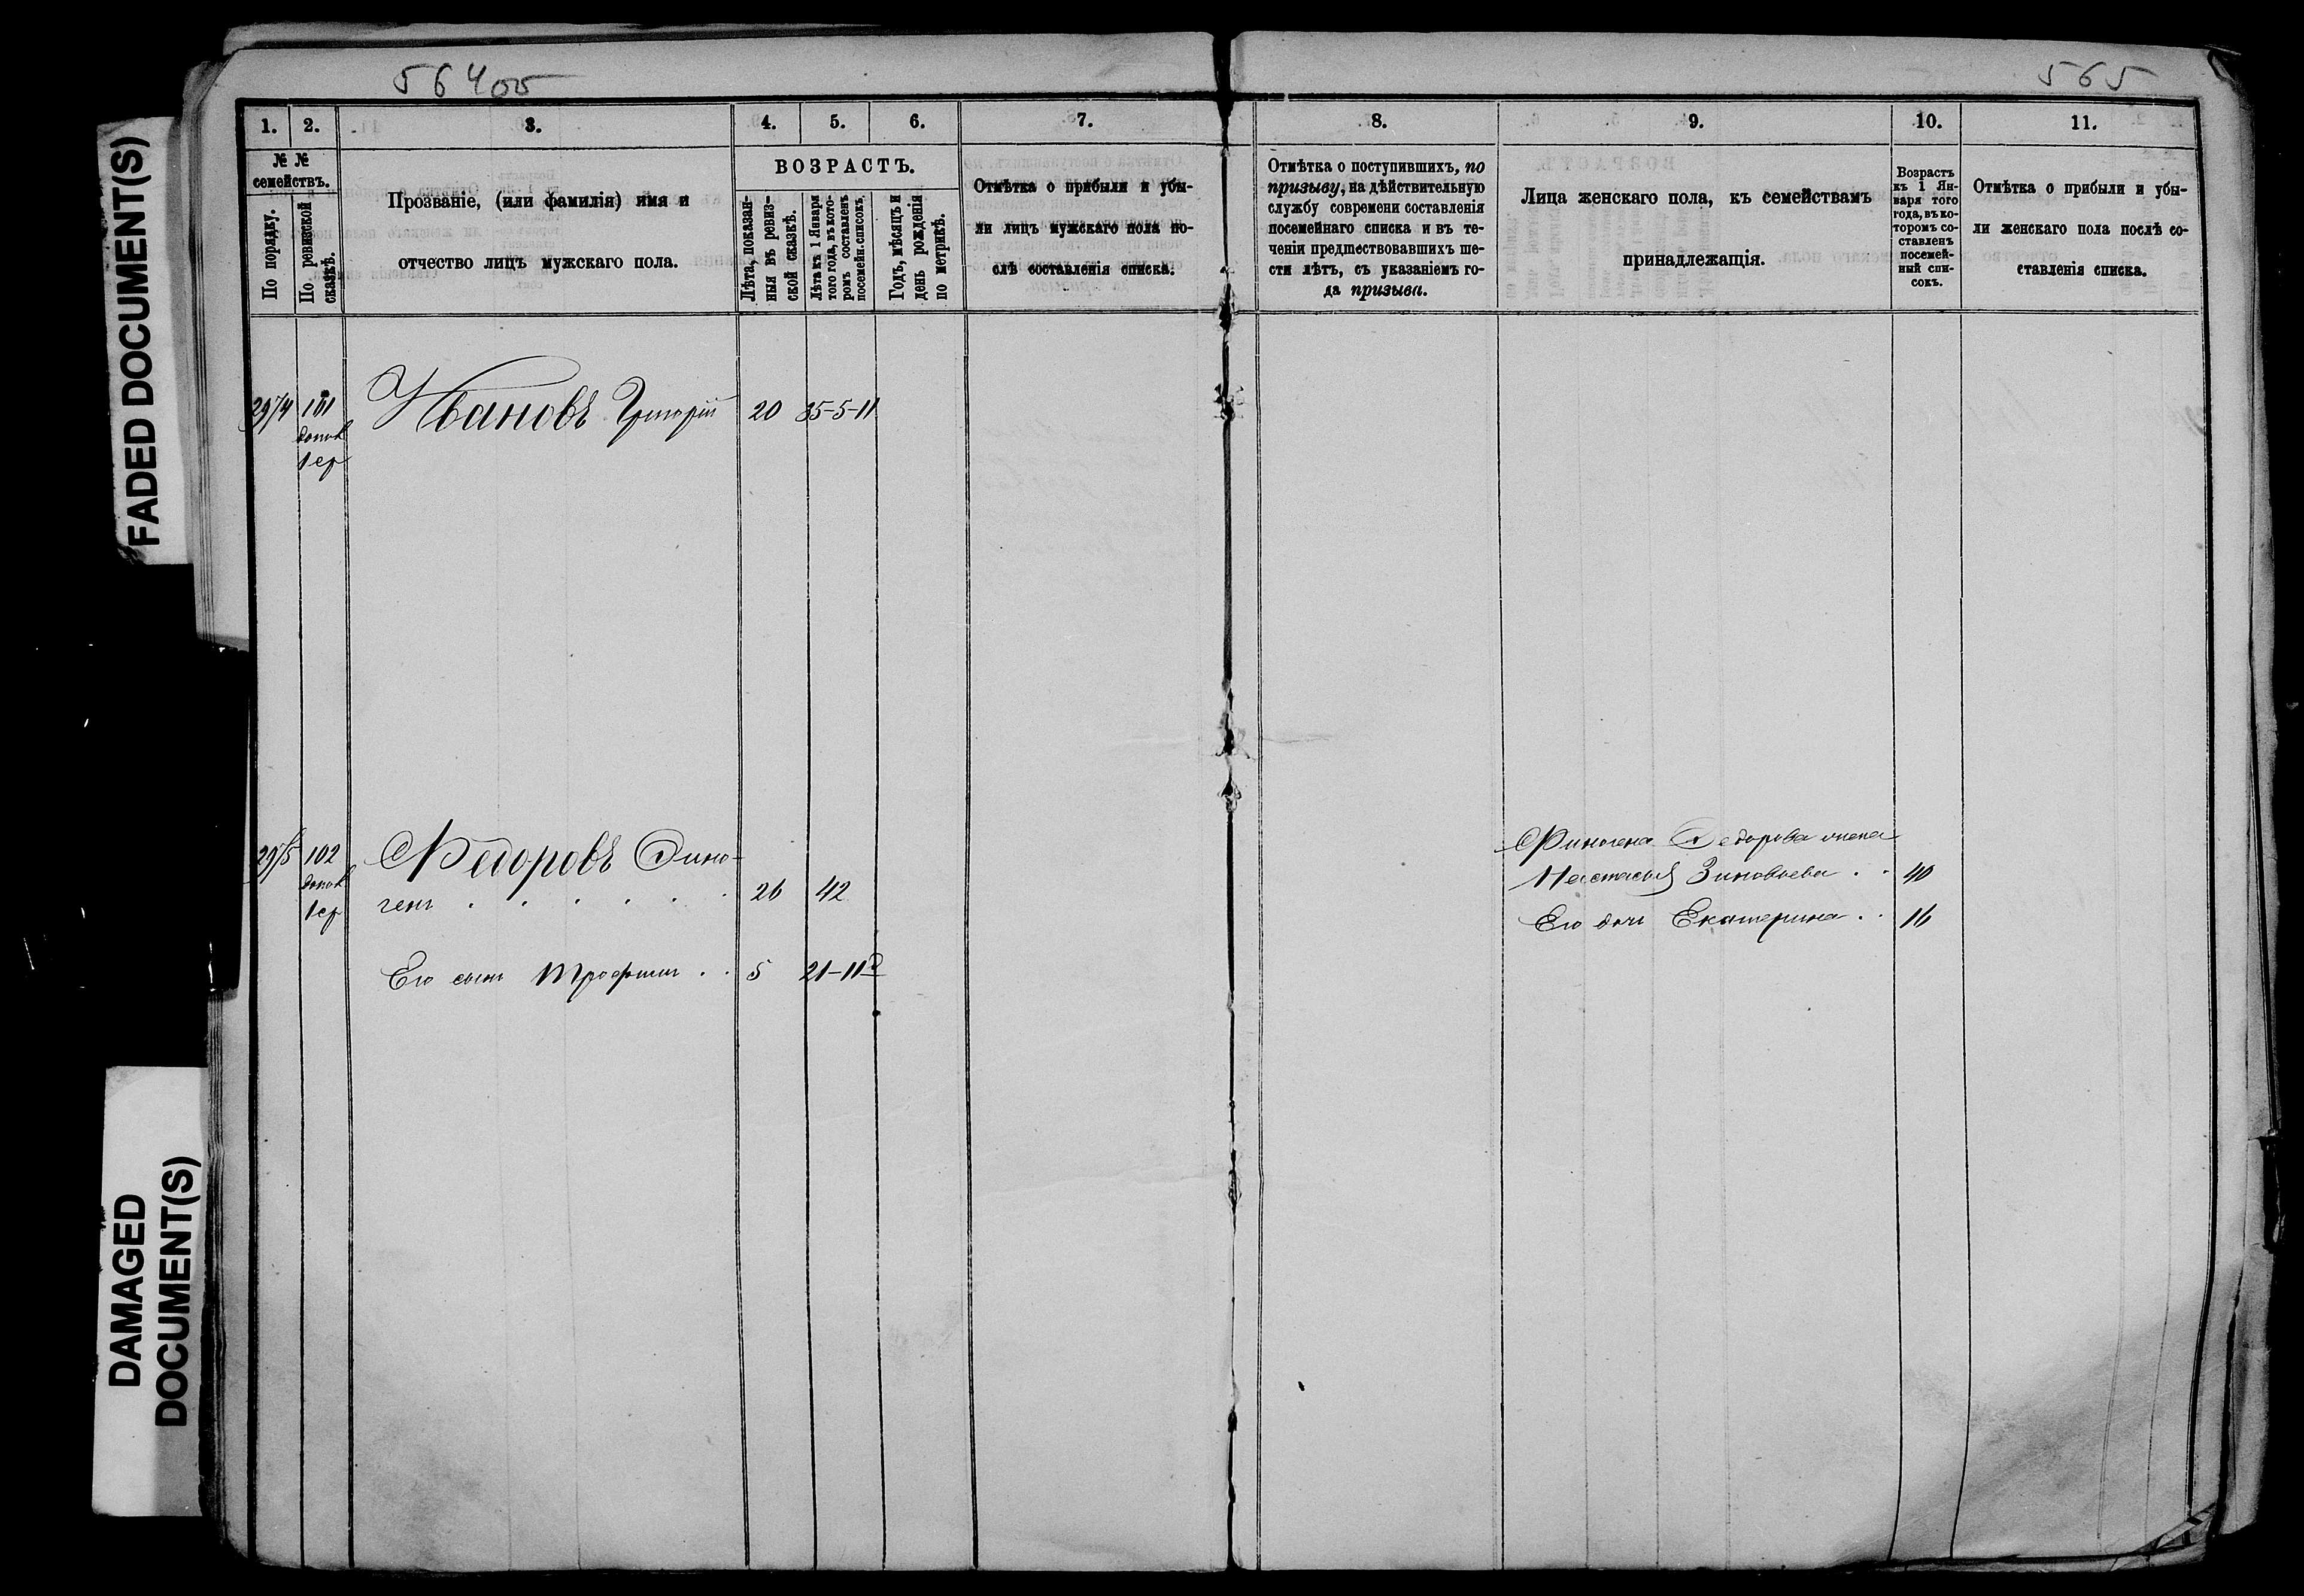 56405
565
FADED DOCUMENT(S)
DAMAGED
DOCUMENT(S)
1. 2. 3. 4. 5. 6. 7.
№ №
семействъ.
По порядку.
По ревизской
сказкѣ.
Прозваніе, (или фамилія) имя и
отчество лицъ мужскаго пола.
ВОЗРАСТЪ.
Лѣта, показан-
ныя въ ревиз-
ской сказкѣ.
Лѣта къ 1 Января
того года, въ кото-
ромъ составленъ
посемейн. списокъ.
Годъ, мѣсяцъ и
день рожденія
по метрикѣ.
Отмѣтка о прибыли и убы-
ли лицъ мужскаго пола по-
слѣ составленія списка.
8. 9. 10. 11.
Отмѣтка о поступившихъ, по
призыву, на дѣйствительную
службу современи составленія
посемейнаго списка и въ те-
ченіи предшествовавшихъ ше-
сти лѣтъ, съ указаніемъ го-
да призыва.
Лица женскаго пола, къ семействамъ
принадлежащія.
Возрастъ
къ 1 Ян-
варя того
года, въ ко-
торомъ со-
ставленъ
посемей-
ный спи-
сокъ.
Отмѣтка о прибыли и убы-
ли женскаго пола послѣ со-
ставленія списка.
2974 101 Ивановъ Григорій 20 35-5-11
1 ср
2975 102 Ѳедоровъ Фино-
генъ . . . . . . 26 42
1 ср
Его сынъ Трофимъ . . 5 21-11
Финогена Ѳедорова жена
Настасья Зиновьева . . 40
Его дочь Екатерина . . 16